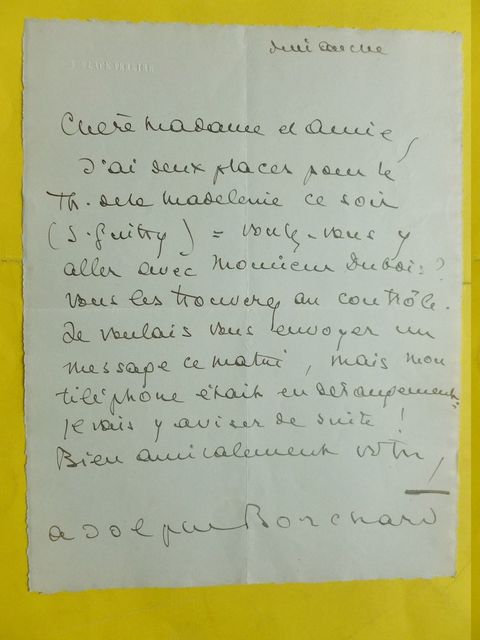 dimanche
Chère Madame et Amie,
J'ai deux places pour le
Th. de la Madeleine ce soir
(S. Guitry) = voulez-vous y
aller avec Monsieur Dubois?
Vous les trouverez au contrôle.
Je voulais vous envoyer un
message ce matin, mais mon
téléphone était en dérangement:
je vais y aviser de suite!
Bien amicalement vôtre,
Adolphe Borchard